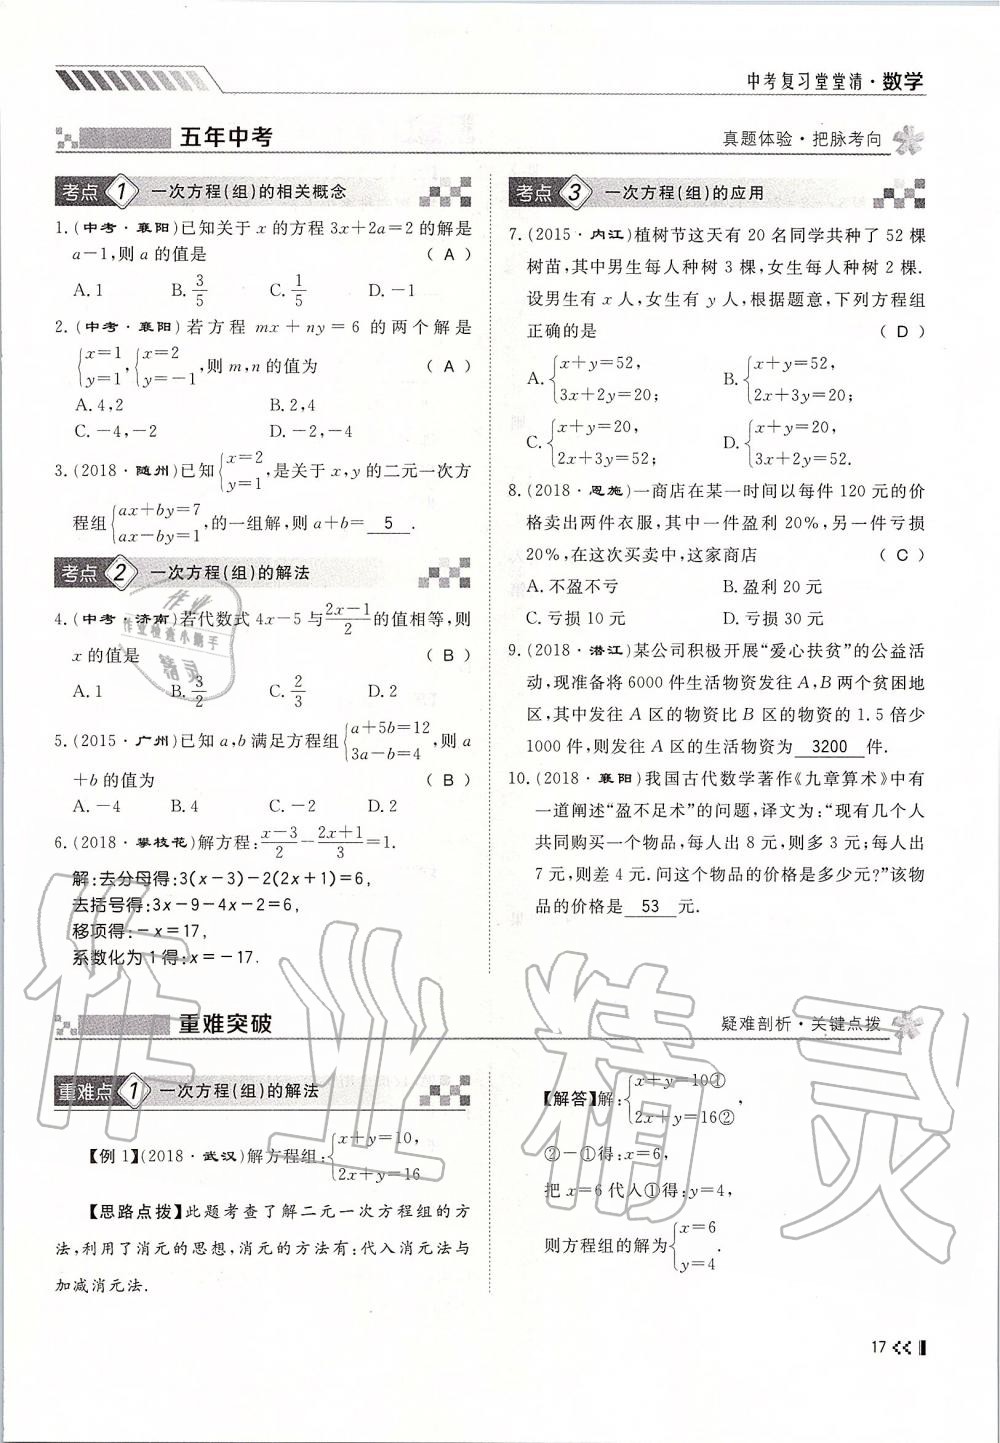 中考复习堂堂清·数学
五年中考
真题体验·把脉考向
考点 1 一次方程(组)的相关概念
1.(中考·襄阳)已知关于 x 的方程 3x+2a=2 的解是
a-1,则 a 的值是 ( A )
A.1 B.3/5 C.1/5 D.-1
2.(中考·襄阳)若方程 mx+ny=6 的两个解是
{x=1 y=1, {x=2 y=-1,则 m,n 的值为 ( A )
A.4,2 B.2,4
C.-4,-2 D.-2,-4
3.(2018·随州)已知{x=2 y=1,是关于 x,y 的二元一次方
程组{ax+by=7 ax-by=1,的一组解,则 a+b= 5 .
考点 2 一次方程(组)的解法
4.(中考·济南)若代数式 4x-5 与 (2x-1)/2 的值相等,则
x 的值是 ( B )
A.1 B.3/2 C.2/3 D.2
5.(2015·广州)已知 a,b 满足方程组{a+5b=12 3a-b=4,则 a
+b 的值为 ( B )
A.-4 B.4 C.-2 D.2
6.(2018·攀枝花)解方程:(x-3)/2-(2x+1)/3=1.
解:去分母得:3(x-3)-2(2x+1)=6,
去括号得:3x-9-4x-2=6,
移项得:-x=17,
系数化为 1 得:x=-17.
考点 3 一次方程(组)的应用
7.(2015·内江)植树节这天有 20 名同学共种了 52 棵
树苗,其中男生每人种树 3 棵,女生每人种树 2 棵.
设男生有 x 人,女生有 y 人,根据题意,下列方程组
正确的是 ( D )
A.{x+y=52, 3x+2y=20; B.{x+y=52, 2x+3y=20;
C.{x+y=20, 2x+3y=52; D.{x+y=20, 3x+2y=52.
8.(2018·恩施)一商店在某一时间以每件 120 元的价
格卖出两件衣服,其中一件盈利 20%,另一件亏损
20%,在这次买卖中,这家商店 ( C )
A.不盈不亏 B.盈利 20 元
C.亏损 10 元 D.亏损 30 元
9.(2018·潜江)某公司积极开展“爱心扶贫”的公益活
动,现准备将 6000 件生活物资发往 A,B 两个贫困地
区,其中发往 A 区的物资比 B 区的物资的 1.5 倍少
1000 件,则发往 A 区的生活物资为 3200 件.
10.(2018·襄阳)我国古代数学著作《九章算术》中有
一道阐述“盈不足术”的问题,译文为:“现有几个人
共同购买一个物品,每人出 8 元,则多 3 元;每人出
7 元,则差 4 元.问这个物品的价格是多少元?”该物
品的价格是 53 元.
重难突破
疑难剖析·关键点拨
重难点 1 一次方程(组)的解法
【例 1】(2018·武汉)解方程组:{x+y=10, 2x+y=16
【思路点拨】此题考查了解二元一次方程组的方
法,利用了消元的思想,消元的方法有:代入消元法与
加减消元法.
【解答】解:{x+y=10① 2x+y=16②,
②-①得:x=6,
把 x=6 代人①得:y=4,
则方程组的解为{x=6 y=4.
17
作业
作业检查小助手
精灵
作业精灵